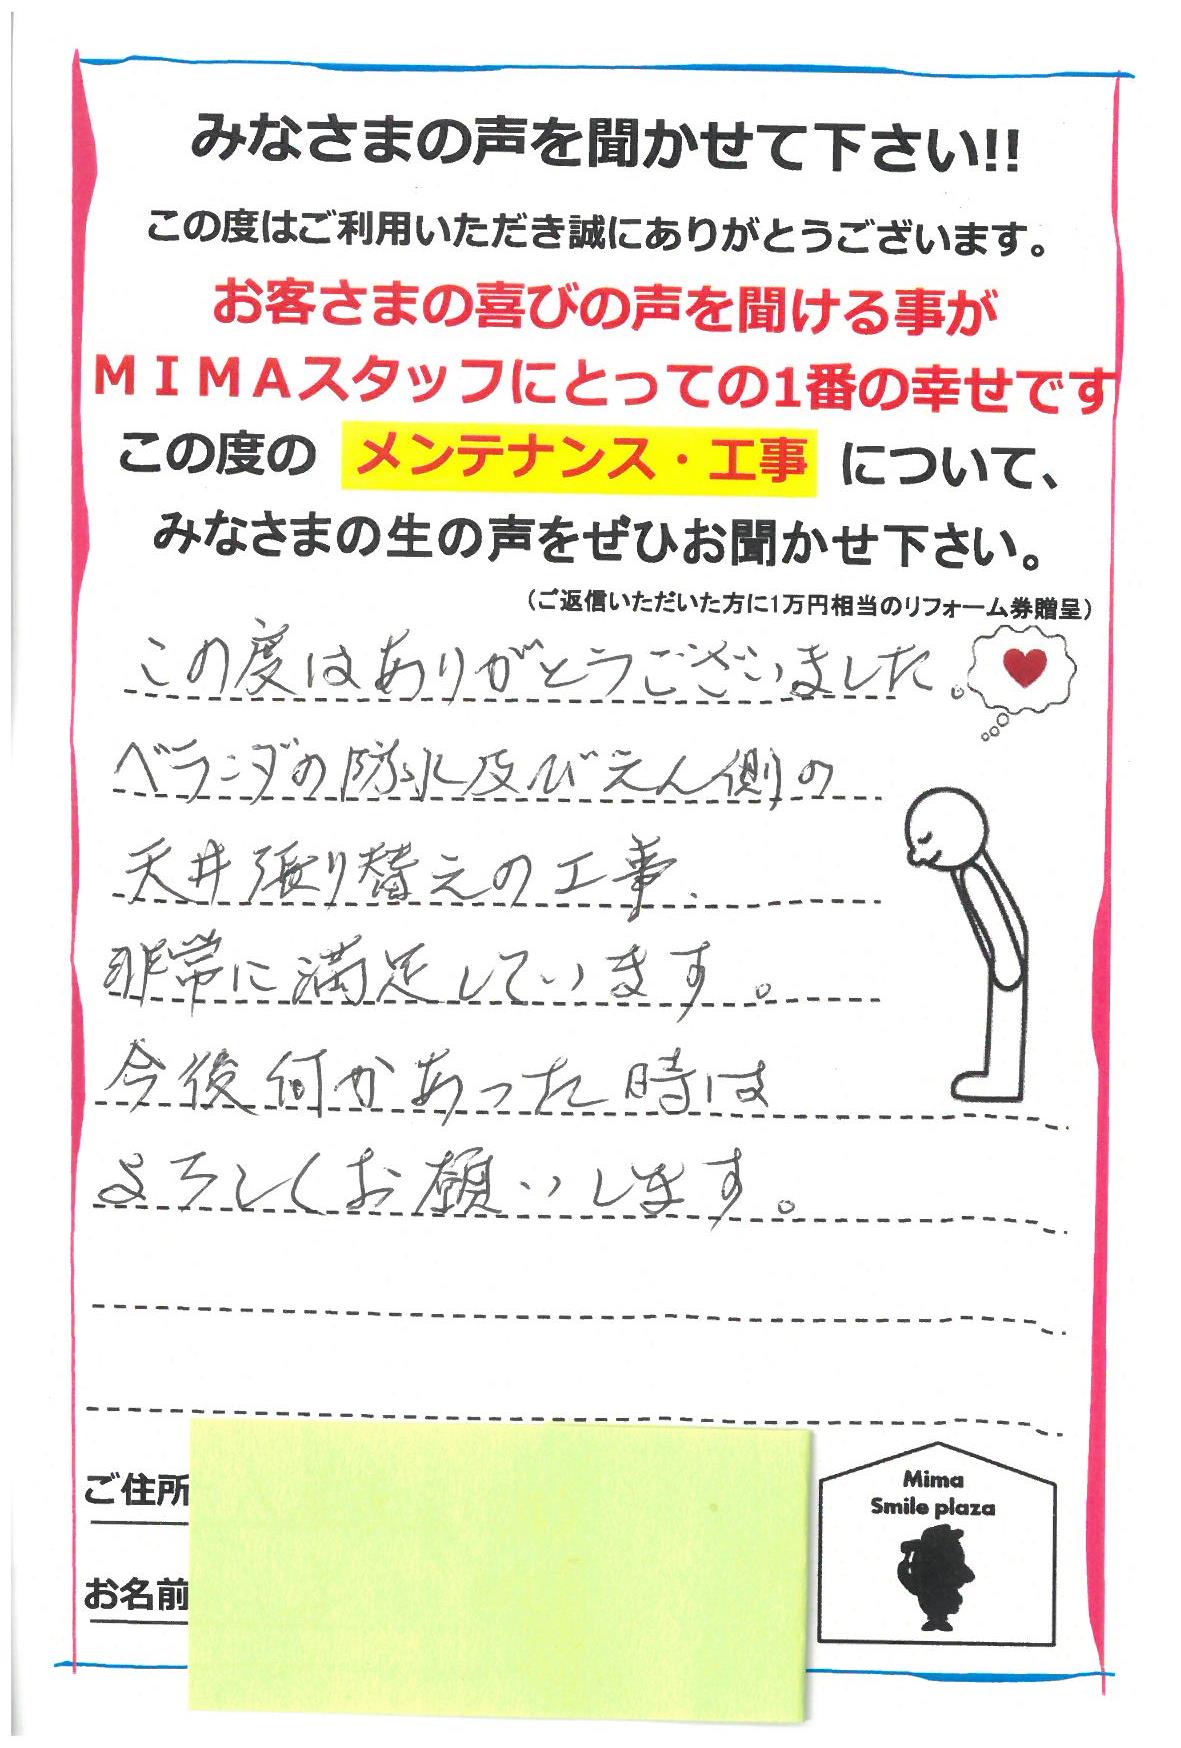 みなさまの声を聞かせて下さい!!
この度はご利用いただき誠にありがとうございます。
お客さまの喜びの声を聞ける事が
ＭＩＭＡスタッフにとっての1番の幸せです
この度の メンテナンス・工事 について、
みなさまの生の声をぜひお聞かせ下さい。
（ご返信いただいた方に1万円相当のリフォーム券贈呈）
この度はありがとうございました。
ベランダの防水及びえん側の
天井張り替えの工事、
非常に満足しています。
今後何かあった時は
よろしくお願いします。
ご住所
お名前
Mima
Smile plaza